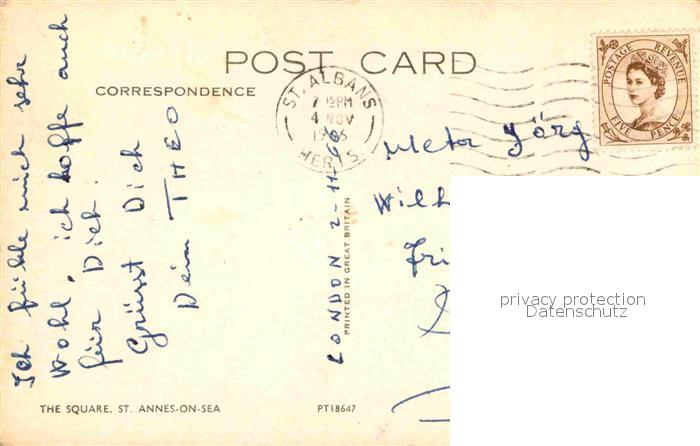 POST CARD
CORRESPONDENCE
Ich fühle mich sehr
wohl, ich hoffe auch
für Dich.
Grüsst Dich
Dein THEO
LONDON 2-11-66
PRINTED IN GREAT BRITAIN
ST. ALBANS
7 15PM
4 NOV
1966
HERTS.
POSTAGE REVENUE
FIVE PENCE
Jörg
Wilh
Fri
privacy protection
Datenschutz
THE SQUARE, ST. ANNES-ON-SEA
PT18647